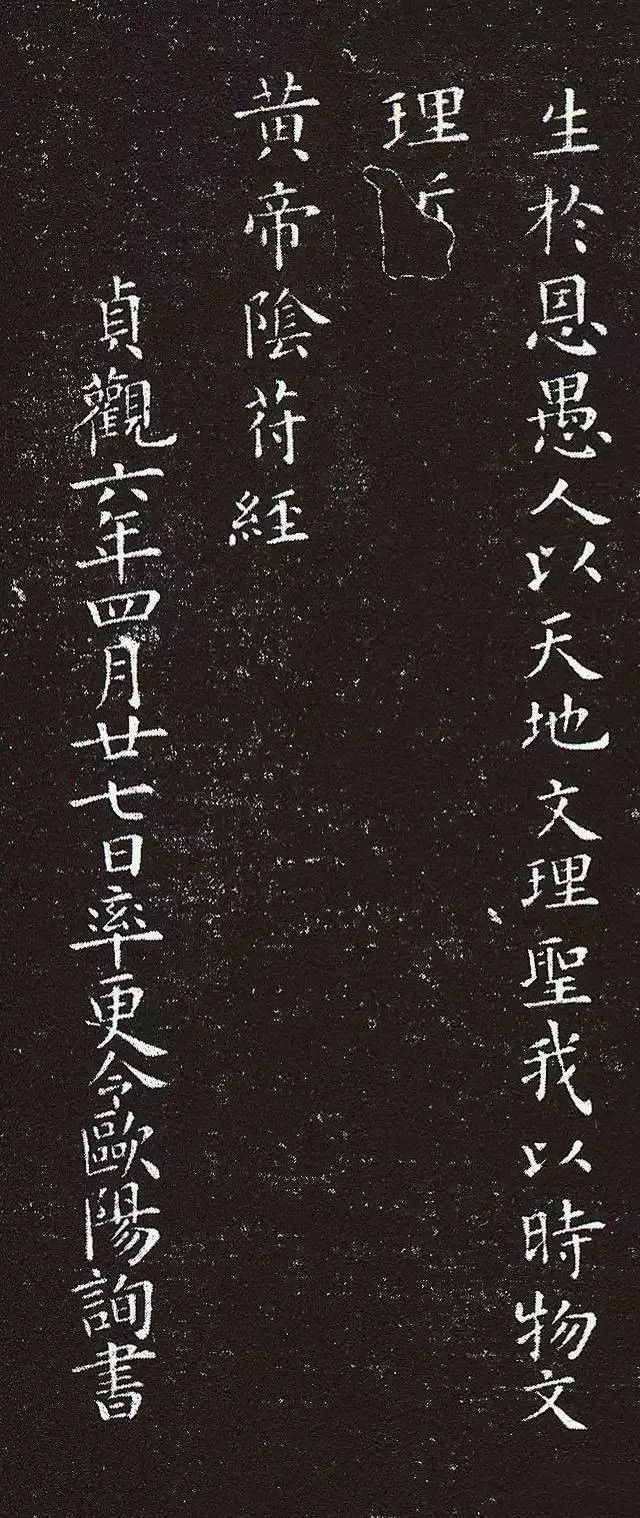 生於恩愚人以天地文理聖我以時物文
理
黃帝陰苻經
貞觀六年四月廿七日率更令歐陽詢書